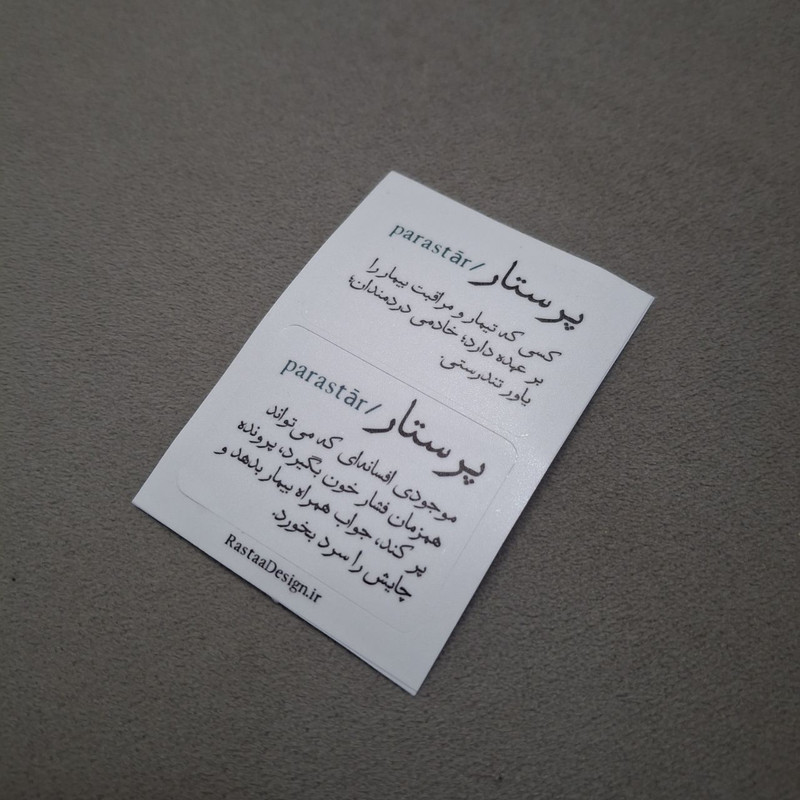 پرستار/parastār
کسی که تیمار و مراقبت بیمار را
بر عهده دارد؛ خادمی دردمندان؛
یاور تندرستی.
پرستار/parastār
موجودی افسانه‌ای که می‌تواند
همزمان فشار خون بگیرد، پرونده
پر کند، جواب همراه بیمار بدهد و
چایش را سرد بخورد.
RastaaDesign.ir